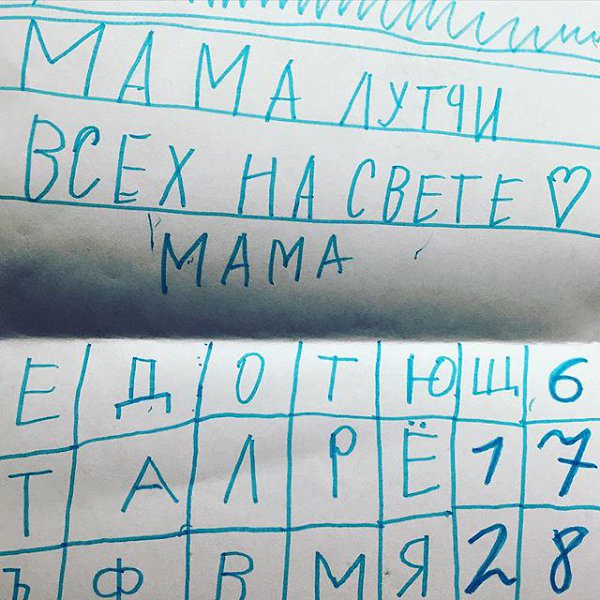 МАМА ЛУТЧИ
ВСЕХ НА СВЕТЕ ♡
МАМА
Е Д О Т Ю Щ 6
Т А Л Р Ё 1 7
Ъ Ф В М Я 2 8